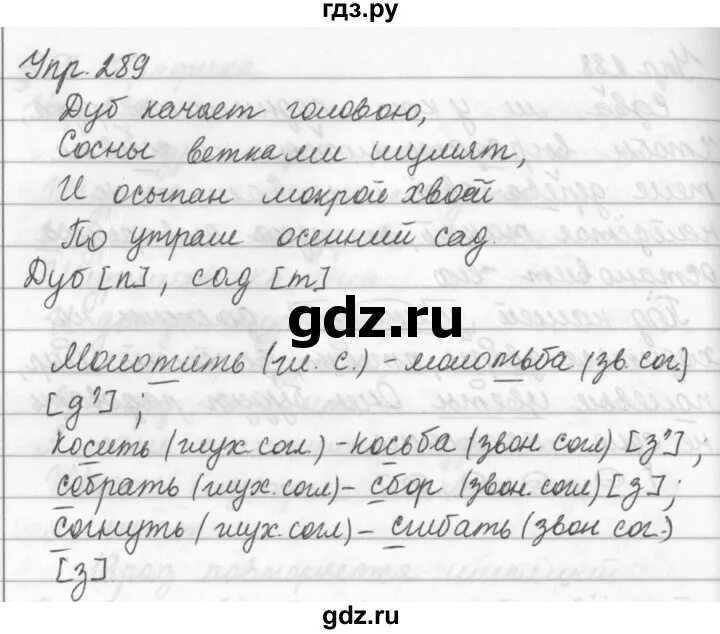 гдз.ру
Упр. 289
Дуб качает головою,
Сосны ветками шумят,
И осыпан мокрой хвоей
По утрам осенний сад.
Дуб [п], сад [т]
gdz.ru
Молотить (гл. с.) - молотьба (зв. сог.)
[д'];
косить (глух. согл.) - косьба (звон. согл) [з'];
собрать (глух. согл) - сбор (звон. согл) [з];
согнуть (глух. согл) - сгибать (звон. сог.)
[з]
gdz.ru